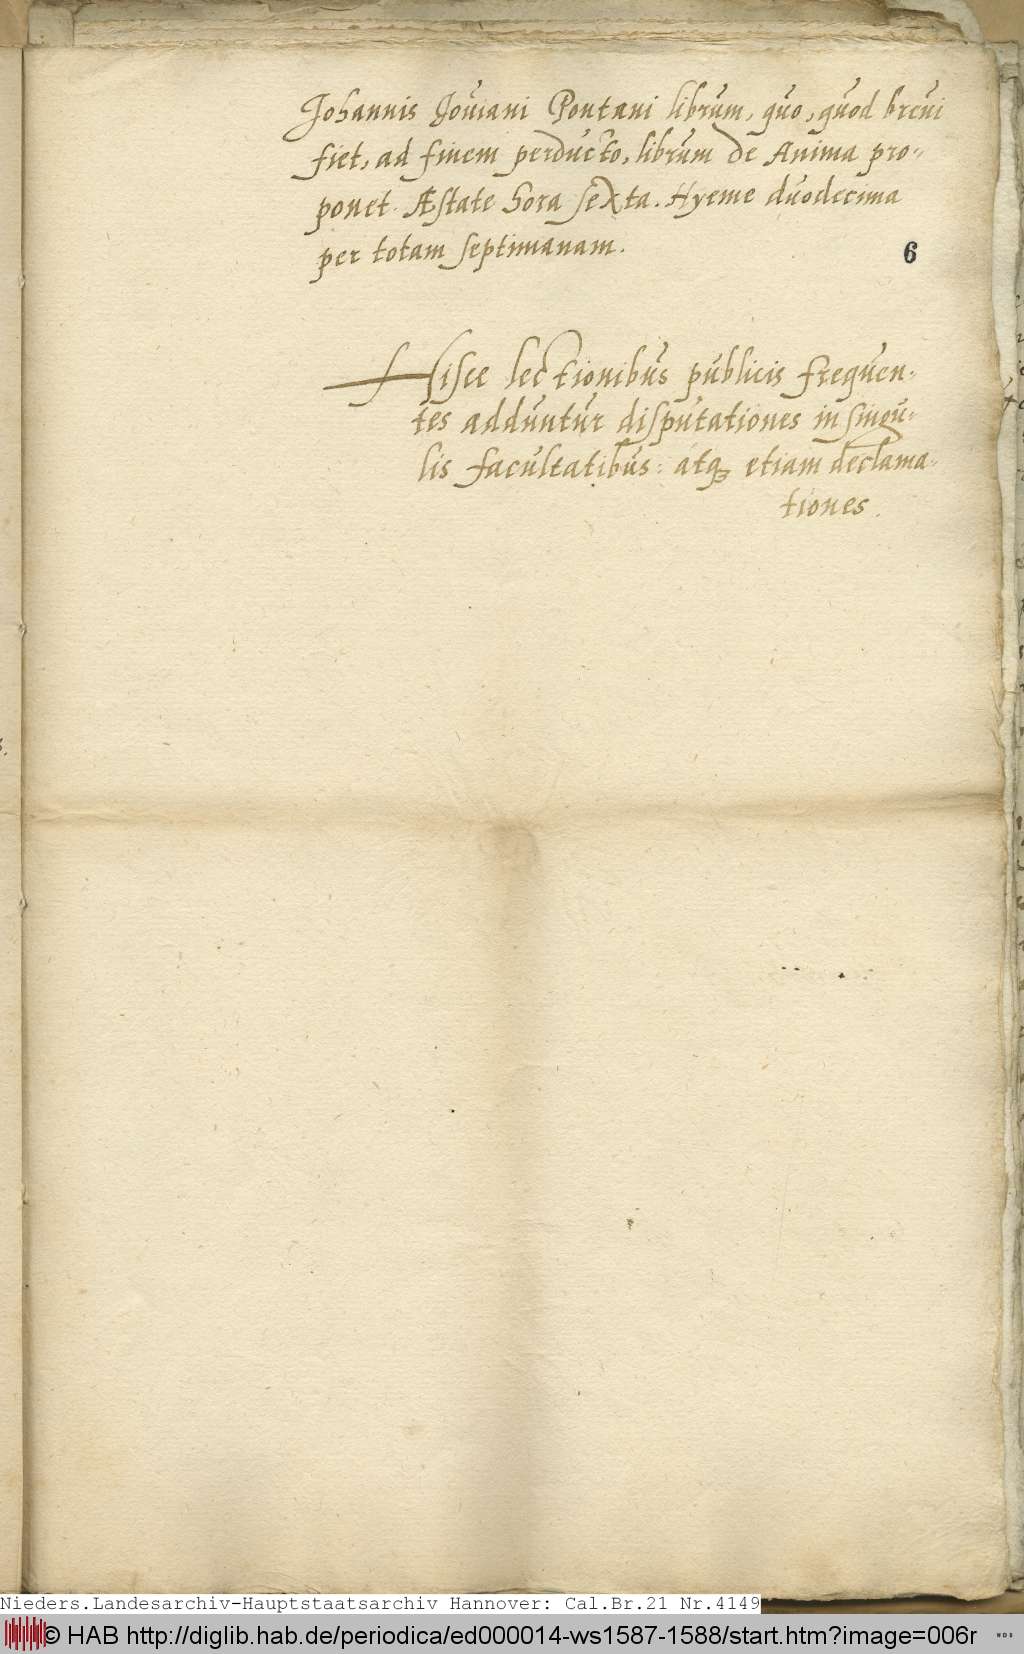 Johannis Jouiani Pontani librum, quo, quod breui
fiet, ad finem perducto, librum de Anima pro-
ponet. Æstate hora sexta. Hyeme duodecima
per totam septimanam.
6
Hisce lectionibus publicis frequen-
tes adduntur disputationes in singu-
lis facultatibus: atq; etiam declama-
tiones.
Nieders.Landesarchiv-Hauptstaatsarchiv Hannover: Cal.Br.21 Nr.4149
© HAB http://diglib.hab.de/periodica/ed000014-ws1587-1588/start.htm?image=006r